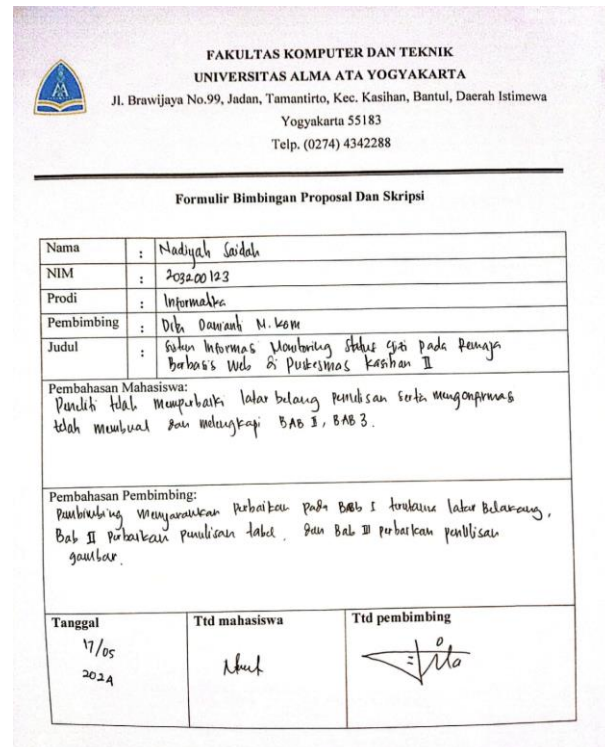 FAKULTAS KOMPUTER DAN TEKNIK
UNIVERSITAS ALMA ATA YOGYAKARTA
Jl. Brawijaya No.99, Jadan, Tamantirto, Kec. Kasihan, Bantul, Daerah Istimewa
Yogyakarta 55183
Telp. (0274) 4342288
Formulir Bimbingan Proposal Dan Skripsi
Nama : Nadiyah Saidah
NIM : 203200123
Prodi : Informatika
Pembimbing : Dita Danianti M.kom
Judul : Sistem Informasi Monitoring Status Gizi pada Remaja
Berbasis Web di Puskesmas Kasihan II
Pembahasan Mahasiswa:
Peneliti telah memperbaiki latar belakang penulisan serta mengonfirmasi
telah membuat dan melengkapi BAB II, BAB 3.
Pembahasan Pembimbing:
Pembimbing menyarankan perbaikan pada Bab I terutama latar Belakang,
Bab II perbaikan penulisan tabel. dan Bab III perbaikan penulisan
gambar.
Tanggal Ttd mahasiswa Ttd pembimbing
17/05
2024